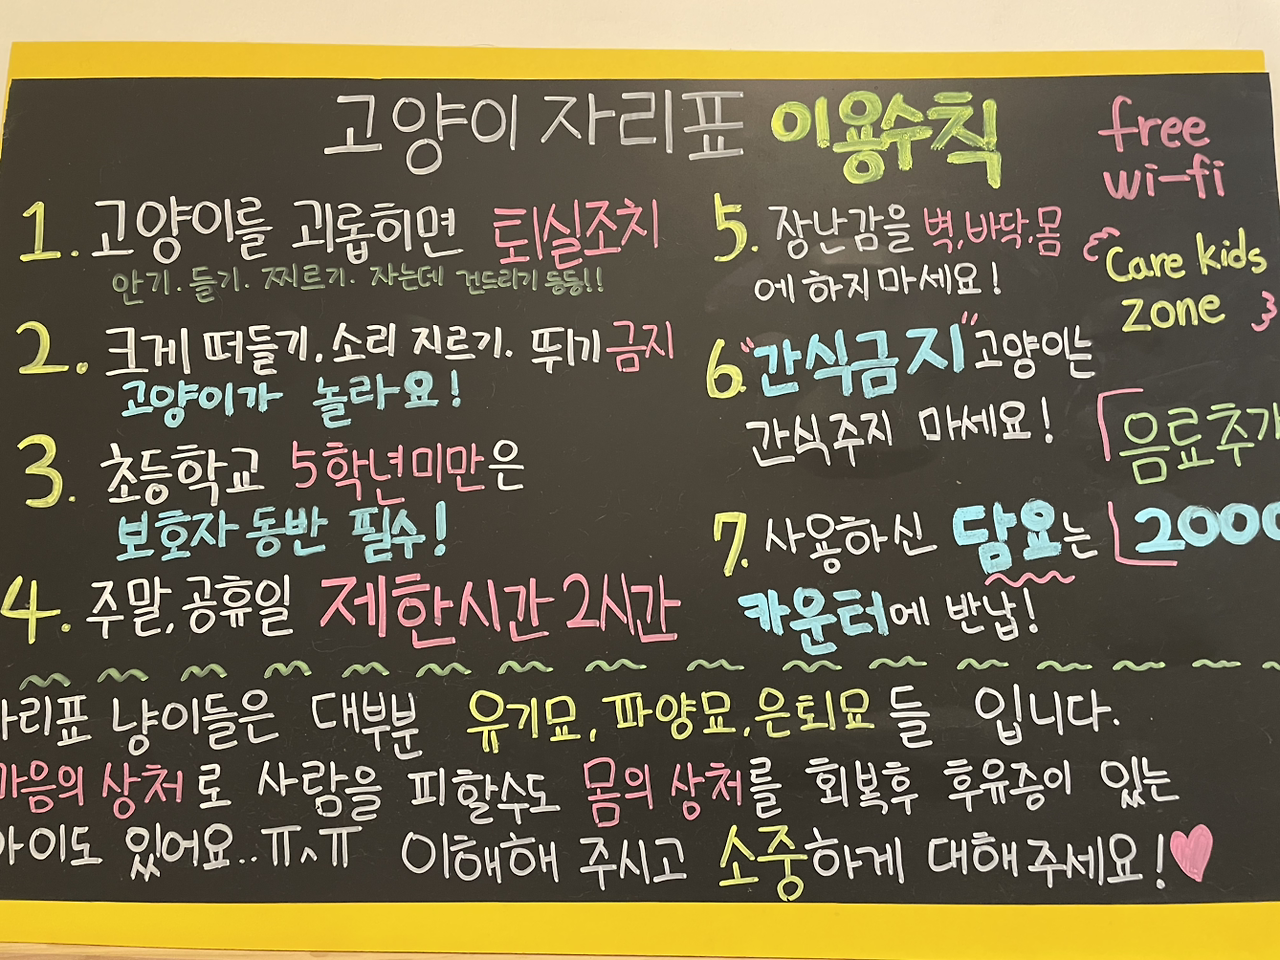 고양이 자리표 이용수칙
free
wi-fi
Care kids
zone
1. 고양이를 괴롭히면 퇴실조치
안기. 들기. 찌르기. 자는데 건드리기 등등!!
2. 크게 떠들기. 소리 지르기. 뛰기 금지
고양이가 놀라요!
3. 초등학교 5학년미만은
보호자 동반 필수!
4. 주말, 공휴일 제한시간 2시간
5. 장난감을 벽, 바닥, 몸
에 하지마세요!
6. "간식금지" 고양이는
간식주지 마세요!
7. 사용하신 담요는
카운터에 반납!
음료추가
2000
자리표 냥이들은 대부분 유기묘, 파양묘, 은퇴묘들 입니다.
마음의 상처로 사람을 피할수도 몸의 상처를 회복후 후유증이 있는
아이도 있어요.. ㅠㅅㅠ 이해해 주시고 소중하게 대해주세요!